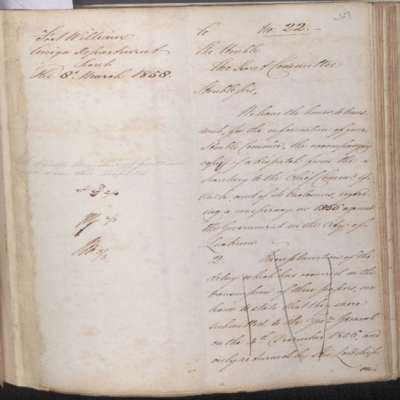 Fort William
Foreign Department
Secret
The 8th March 1858.
To No. 22.
The Honble
The Secret Committee
Honble Sirs,
We have the honor to trans
mit, for the information of your
Honble Committee, the accompanying
copy of a despatch from the
Secretary to the Chief Commr. of
Oude and of its enclosures, regard
ing a conspiracy in 1856 against
the Government in the City of
Lucknow.
2. In explanation of the
delay which has occurred in the
transmission of these papers, we
have to state that they were
submitted to the Govr. General
on the 4th December 1856, and
only returned by His Lordship
on